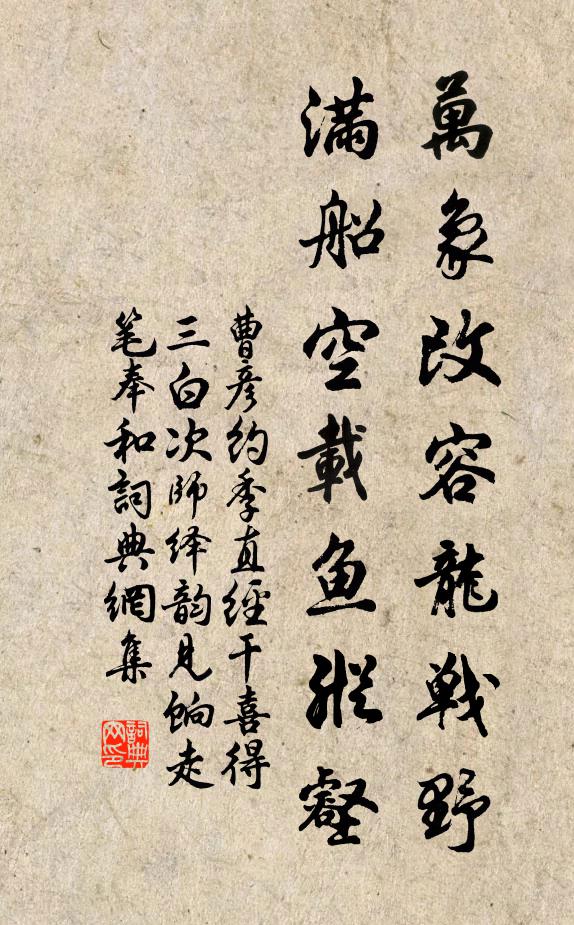 萬象改容龍戰野
滿船空載魚縱壑
曹彦約季直經干喜得
三白次師绎韵見餉走
笔奉和詞典網集
詞典网印